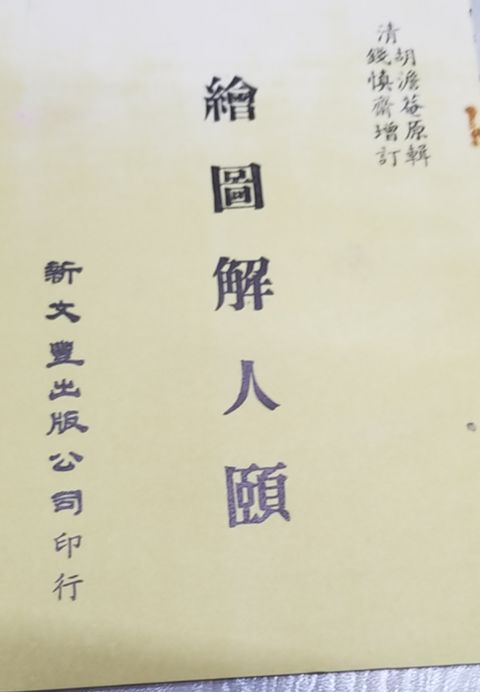 清 胡澹菴原輯
錢慎齋增訂
繪圖解人頤
新文豐出版公司印行